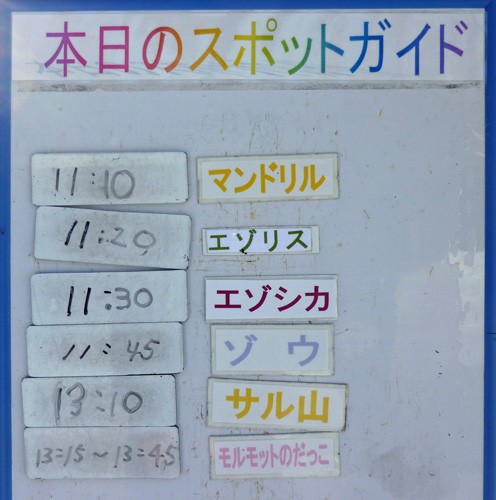 本日のスポットガイド
11:10 マンドリル
11:20 エゾリス
11:30 エゾシカ
11:45 ゾウ
13:10 サル山
13:15～13:45 モルモットのだっこ